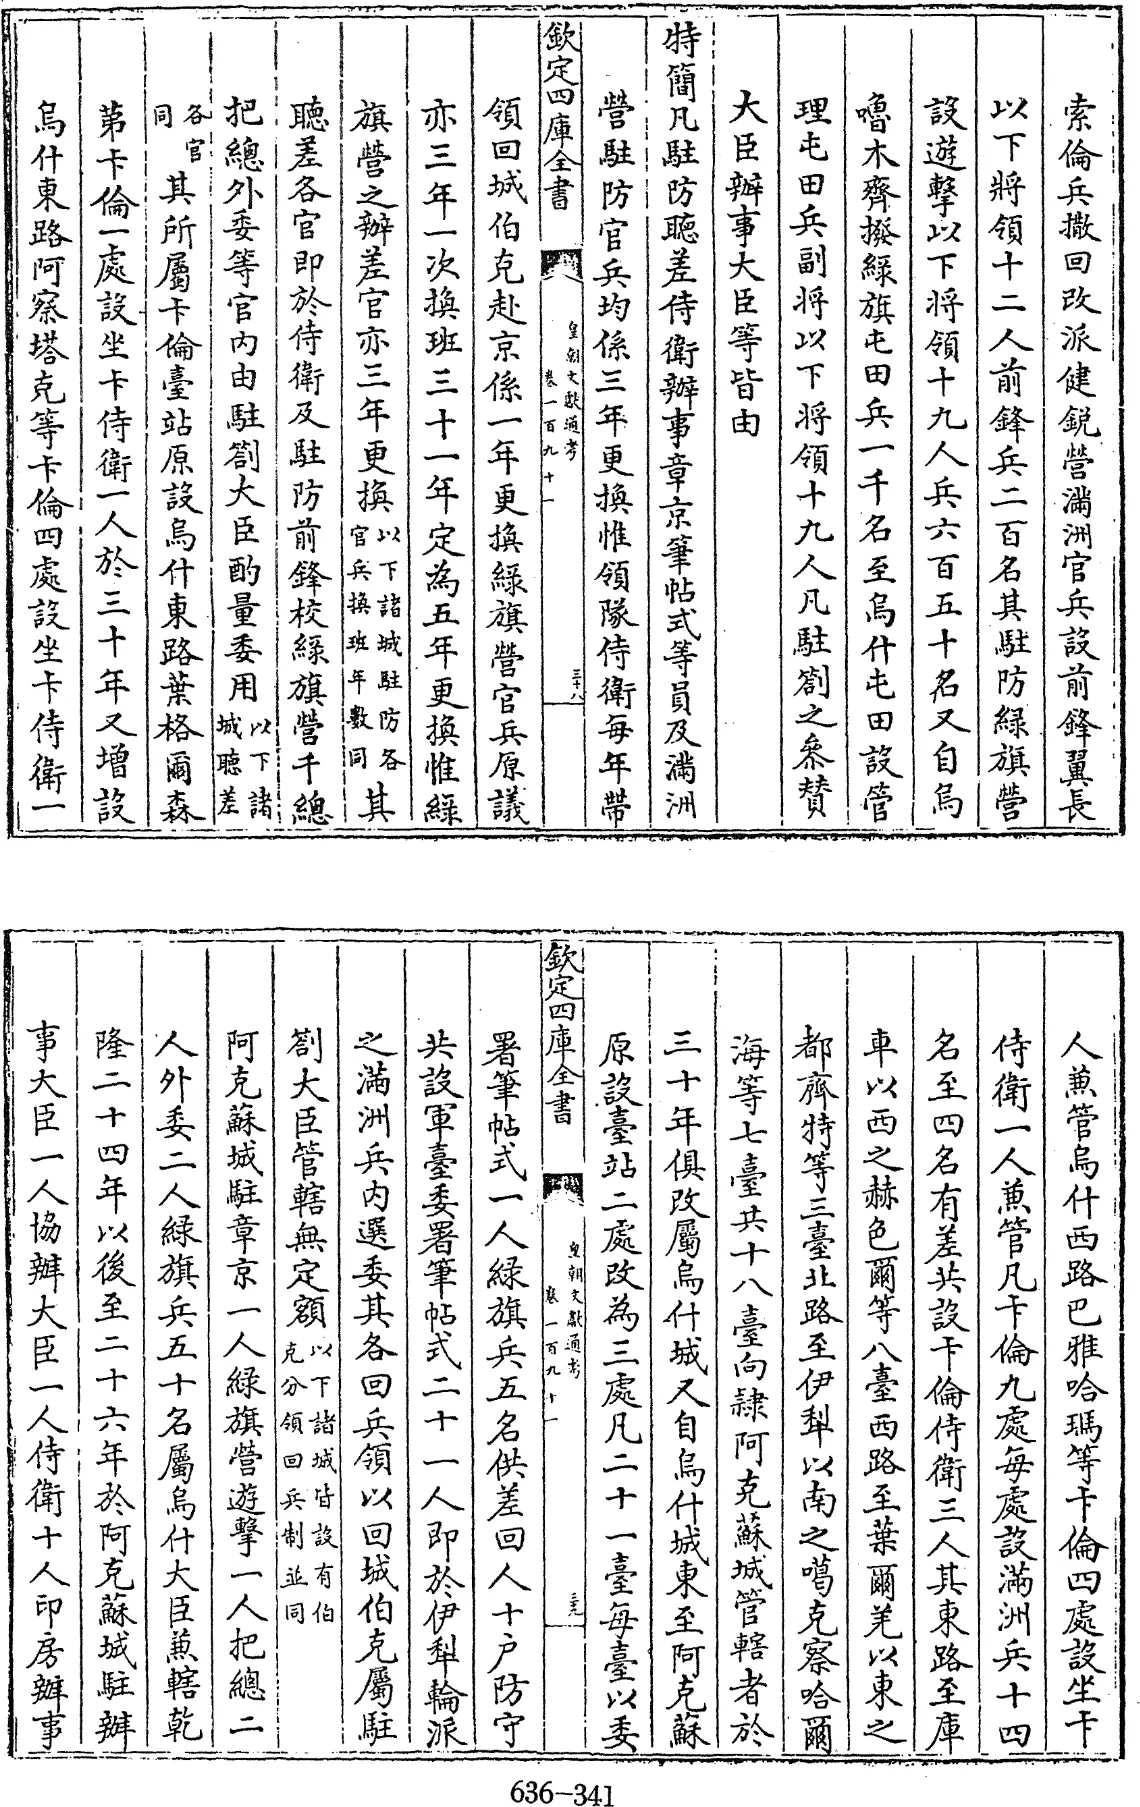 索倫兵撤回改派健銳營滿洲官兵設前鋒翼長
以下將領十二人前鋒兵二百名其駐防緑旗營
設遊擊以下將領十九人兵六百五十名又自烏
嚕木齊撥緑旗屯田兵一千名至烏什屯田設管
理屯田兵副將以下將領十九人凡駐劄之叅贊
大臣辦事大臣等皆由
特簡凡駐防聽差侍衛辦事章京筆帖式等員及滿洲
營駐防官兵均係三年更換惟領隊侍衛每年帶
欽定四庫全書
皇朝文獻通考
卷一百九十一
三十八
領回城伯克赴京係一年更換緑旗營官兵原議
亦三年一次換班三十一年定為五年更換惟緑
旗營之辦差官亦三年更換以下諸城駐防各
官兵換班年數同其
聽差各官即於侍衛及駐防前鋒校緑旗營千總
把總外委等官内由駐劄大臣酌量委用以下諸
城聽差
各官
同其所屬卡倫臺站原設烏什東路葉格爾森
第卡倫一處設坐卡侍衛一人於三十年又增設
烏什東路阿察塔克等卡倫四處設坐卡侍衛一
人兼管烏什西路巴雅哈瑪等卡倫四處設坐卡
侍衛一人兼管凡卡倫九處每處設滿洲兵十四
名至四名有差共設卡倫侍衛三人其東路至庫
車以西之赫色爾等八臺西路至葉爾羌以東之
都齊特等三臺北路至伊犁以南之噶克察哈爾
海等七臺其十八臺向隷阿克蘇城管轄者於
三十年俱改屬烏什城又自烏什城東至阿克蘇
原設臺站二處改為三處凡二十一臺每臺以委
欽定四庫全書
皇朝文獻通考
卷一百九十一
三九
署筆帖式一人緑旗兵五名供差回人十户防守
共設軍臺委署筆帖式二十一人即於伊犁輪派
之滿洲兵内選委其各回兵領以回城伯克屬駐
劄大臣管轄無定額以下諸城皆設有伯
克分領回兵制並同
阿克蘇城駐章京一人緑旗營遊擊一人把總二
人外委二人緑旗兵五十名屬烏什大臣兼轄乾
隆二十四年以後至二十六年於阿克蘇城駐辦
事大臣一人協辦大臣一人侍衛十人印房辦事
636-341